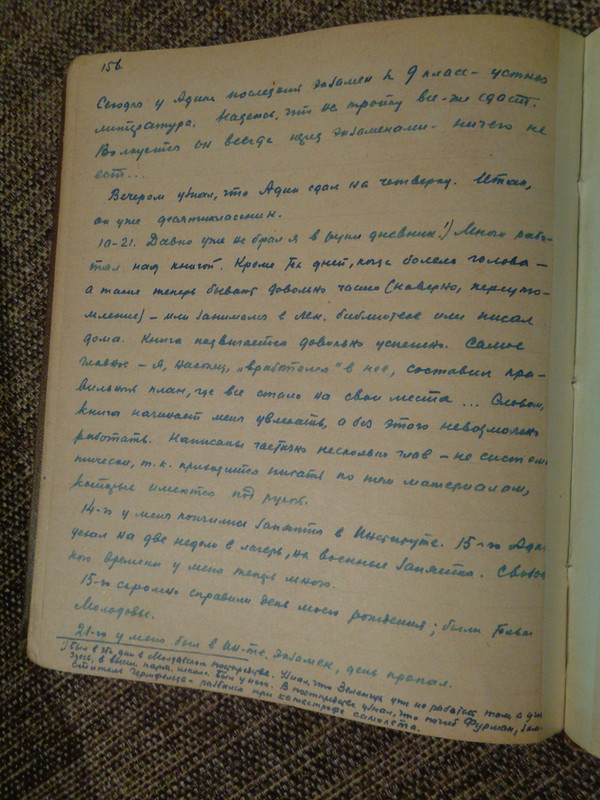 156.
Сегодня у Адика последний экзамен за 9 класс – устная
литература. Надеюсь, что на тройку все-же сдаст.
Волнуется он всегда перед экзаменами – ничего не
ест...
Вечером узнал, что Адик сдал на четверку. Итак,
он уже десятиклассник.
10-21. Давно уже не брал я в руки дневник!) Много рабо-
тал над книгой. Кроме тех дней, когда болела голова –
а такие теперь бывают довольно часто (наверно, переуто-
мление) – или занимался в Лен. библиотеке или писал
дома. Книга подвигается довольно успешно. Самое
главное – я, наконец, „вработался" в нее, составил пра-
вильный план, где все стало на свои места ... Словом,
книга начинает меня увлекать, а без этого невозможно
работать. Написаны частично несколько глав – не система-
тически, т.к. приходится писать по тем материалам,
которые имеются под рукой.
14-го у меня кончились занятия в Институте. 15-го Адик
уехал на две недели в лагерь, на военные занятия. Свобод-
ного времени у меня теперь много.
15-го скромно справили день моего рождения; были только
Молодовы.
21-го у меня был в ин-те экзамен, день пропал.
!) Был в эти дни в Молдавском постпредстве. Узнал, что Зеленчук уже не работает там, а
здесь, в был у нас. В постпредстве узнал, что погиб Фурман, зам-
еститель – разбился при катастрофе самолета.